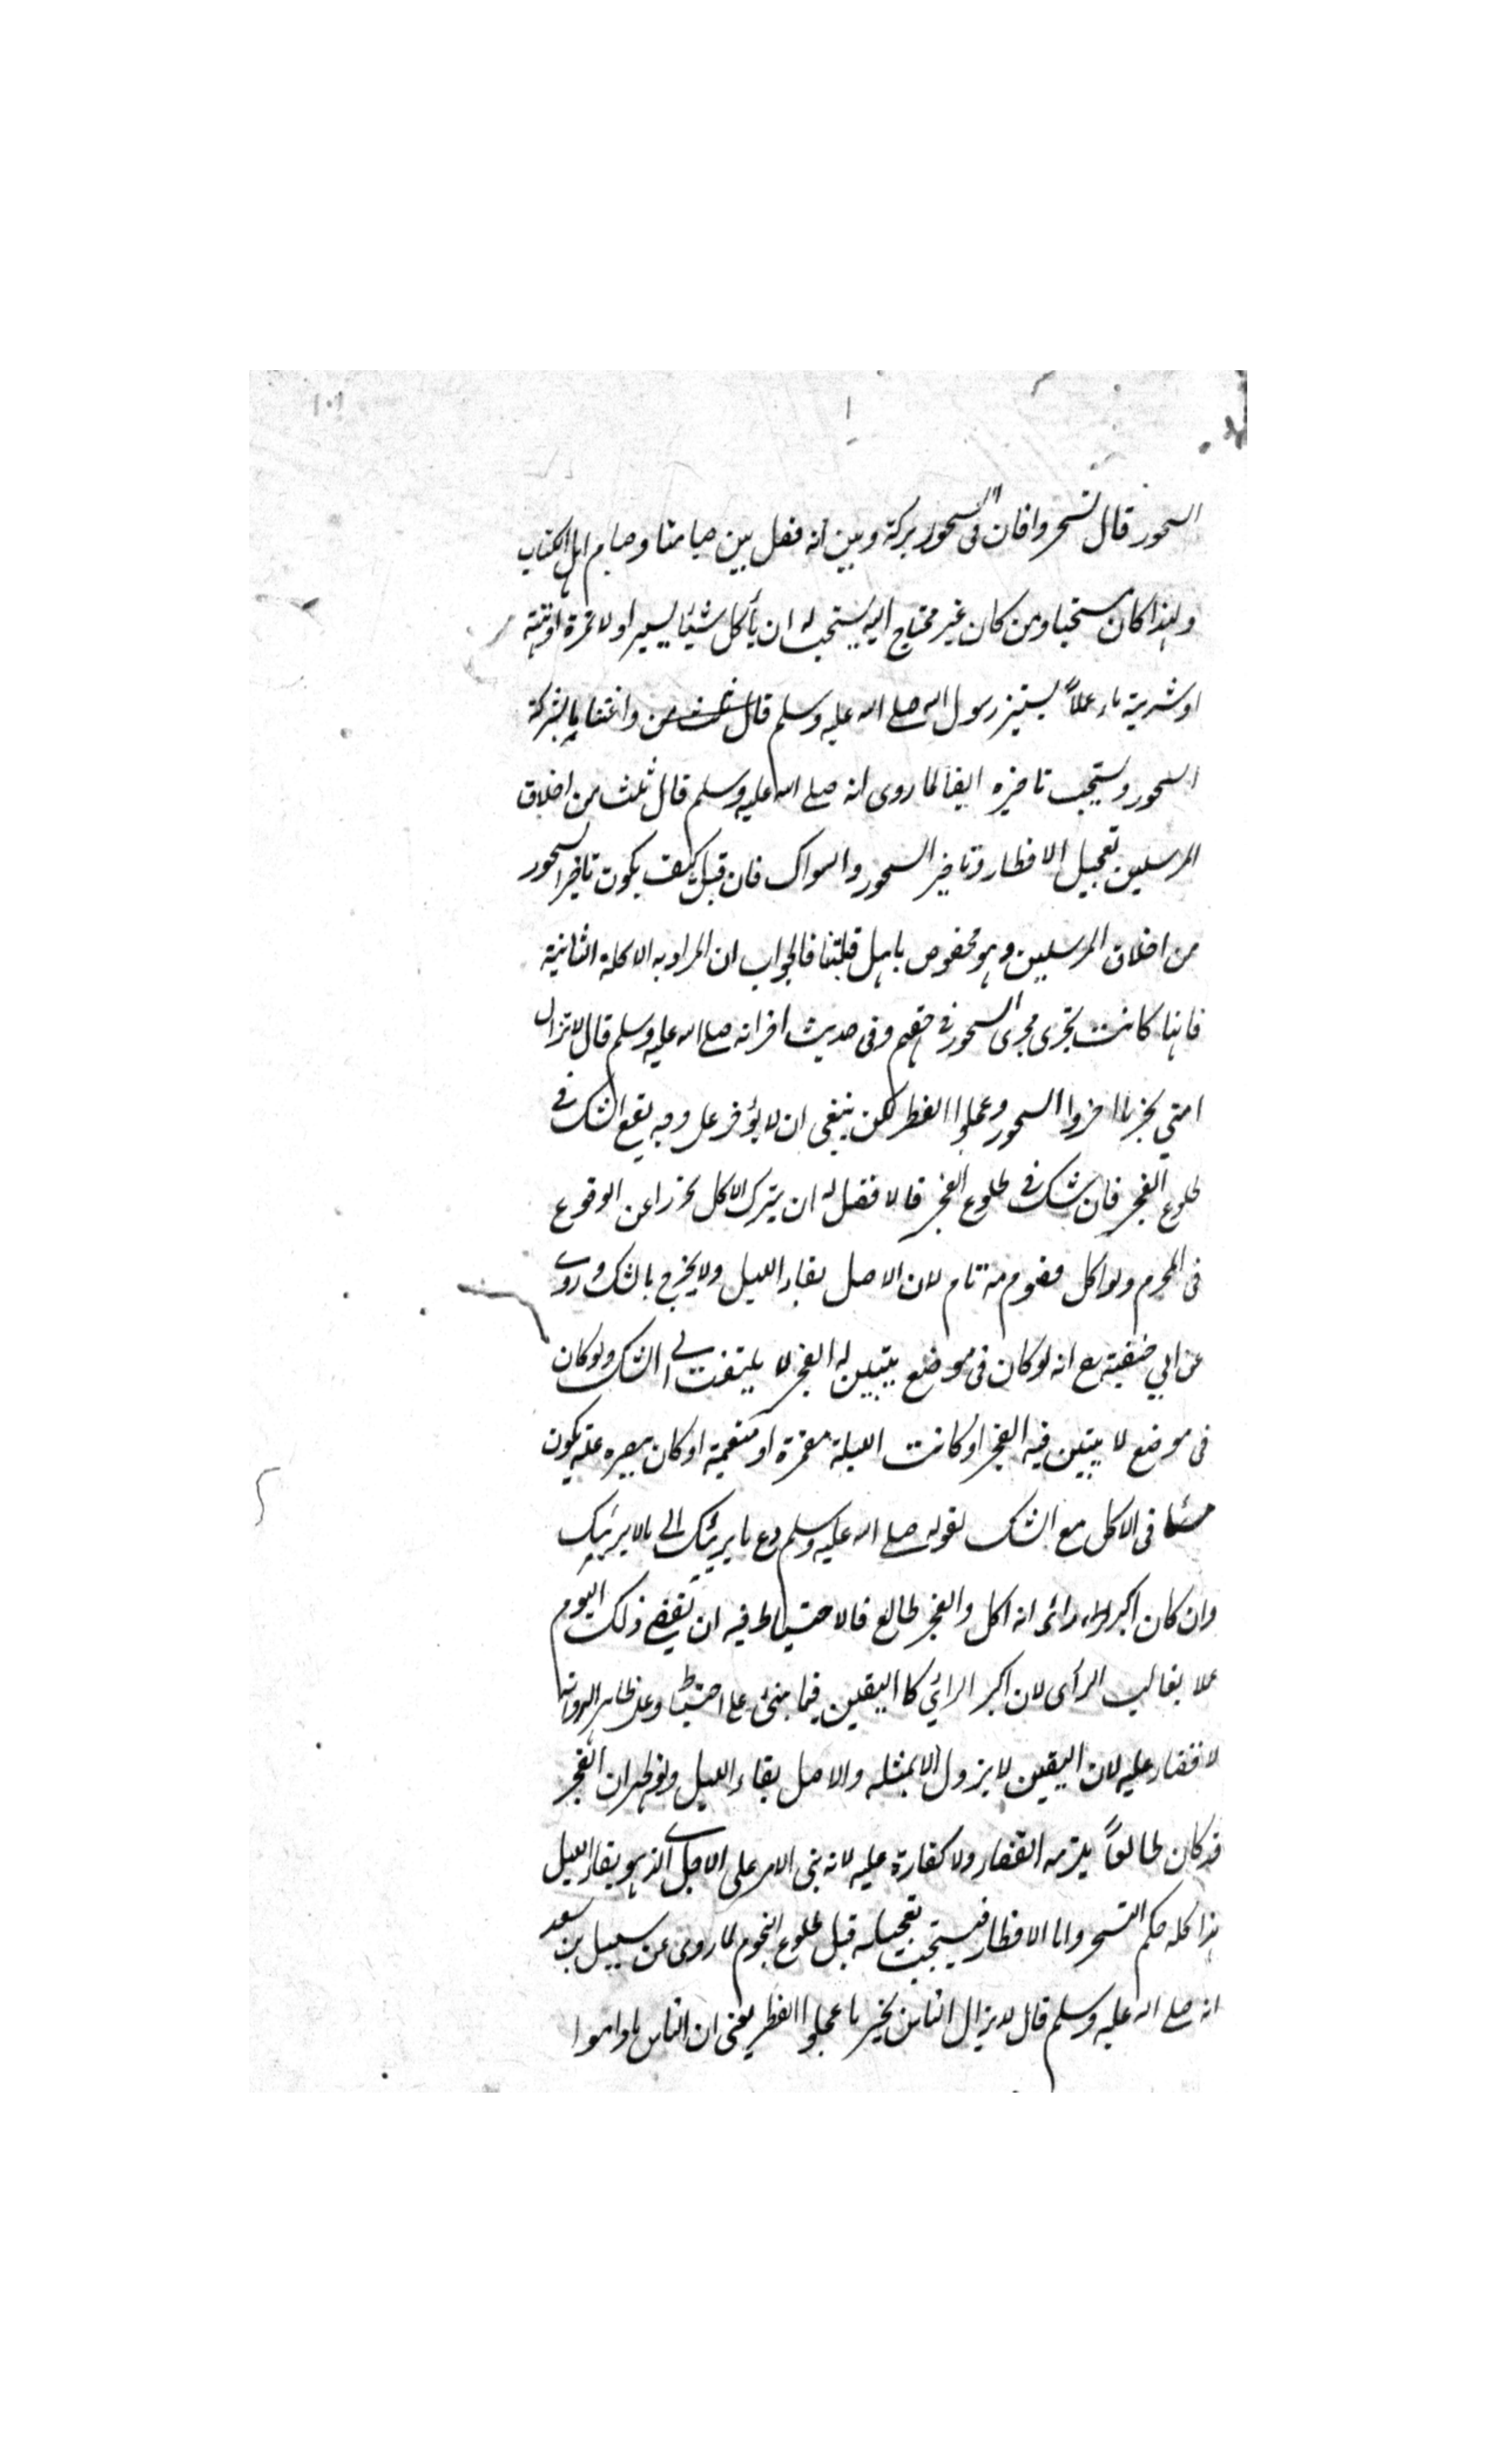 السحور قال تسحروا فان فى السحور بركة وبين انه فصل بين صيامنا وصيام اهل الكتاب
ولهذا كان مستحبا ومن كان غير محتاج اليه يستحب له ان يأكل شيئا يسيرا ولا تمرة او تينة
او شربة ماء عملاً بسنة رسول الله صلے الله عليه وسلم قال واغتنا با لبركة
السحور ويستحب تاخيره ايضا لما روى انه صلے الله عليه وسلم قال ثلث من اخلاق
المرسلين تعجيل الافطار وتاخير السحور والسواك فان قيل كيف يكون تاخير السحور
من اخلاق المرسلين وهو مخصوص باهل قبلتنا فالجواب ان المراد به الاكلة الثانية
فانها كانت تجرى مجرى السحور فى حقهم وفى حديث اخر انه صلے الله عليه وسلم قال لا تزال
امتي بخير ما اخروا السحور وعجلوا الفطر لكن ينبغى ان لا يؤخر على وجه يقع الشك فى
طلوع الفجر فان شك فى طلوع الفجر فالا فضل له ان يترك الاكل تحرزا عن الوقوع
فى المحرم ولو اكل فصومه تام لان الاصل بقاء الليل ولا يخرج بالشك وروى
عن ابي حنيفة رح انه لو كان فى موضع يتبين له الفجر لا يلتفت الى الشك ولو كان
فى موضع لا يتبين فيه الفجر او كانت الليلة مقمرة او متغيمة او كان ببصره علة يكون
مسئا فى الاكل مع الشك لقوله صلے الله عليه وسلم دع ما يريبك الى مالا يريبك
وان كان اكبر رائه انه اكل والفجر طالع فالاحتياط فيه ان يقضے ذلك اليوم
عملا بغالب الرأى لان اكبر الرائي كا اليقين فيما بنى على احتياط وعلى ظاهر الرواية
لا قضاء عليه لان اليقين لا يزول الا بمثله والاصل بقاء الليل ولو ظهر ان الفجر
قد كان طالعاً يلزمه القضاء ولا كفارة عليه لانه بنى الامر على الاصل الذى هو بقاء الليل
هذا كله حكم التسحر واما الافطار فيستحب تعجيله قبل طلوع النجوم لما روى عن سهيل بن سعد
انه صلے الله عليه وسلم قال لا يزال الناس بخير ما عجلوا الفطر يعنى ان الناس ما داموا